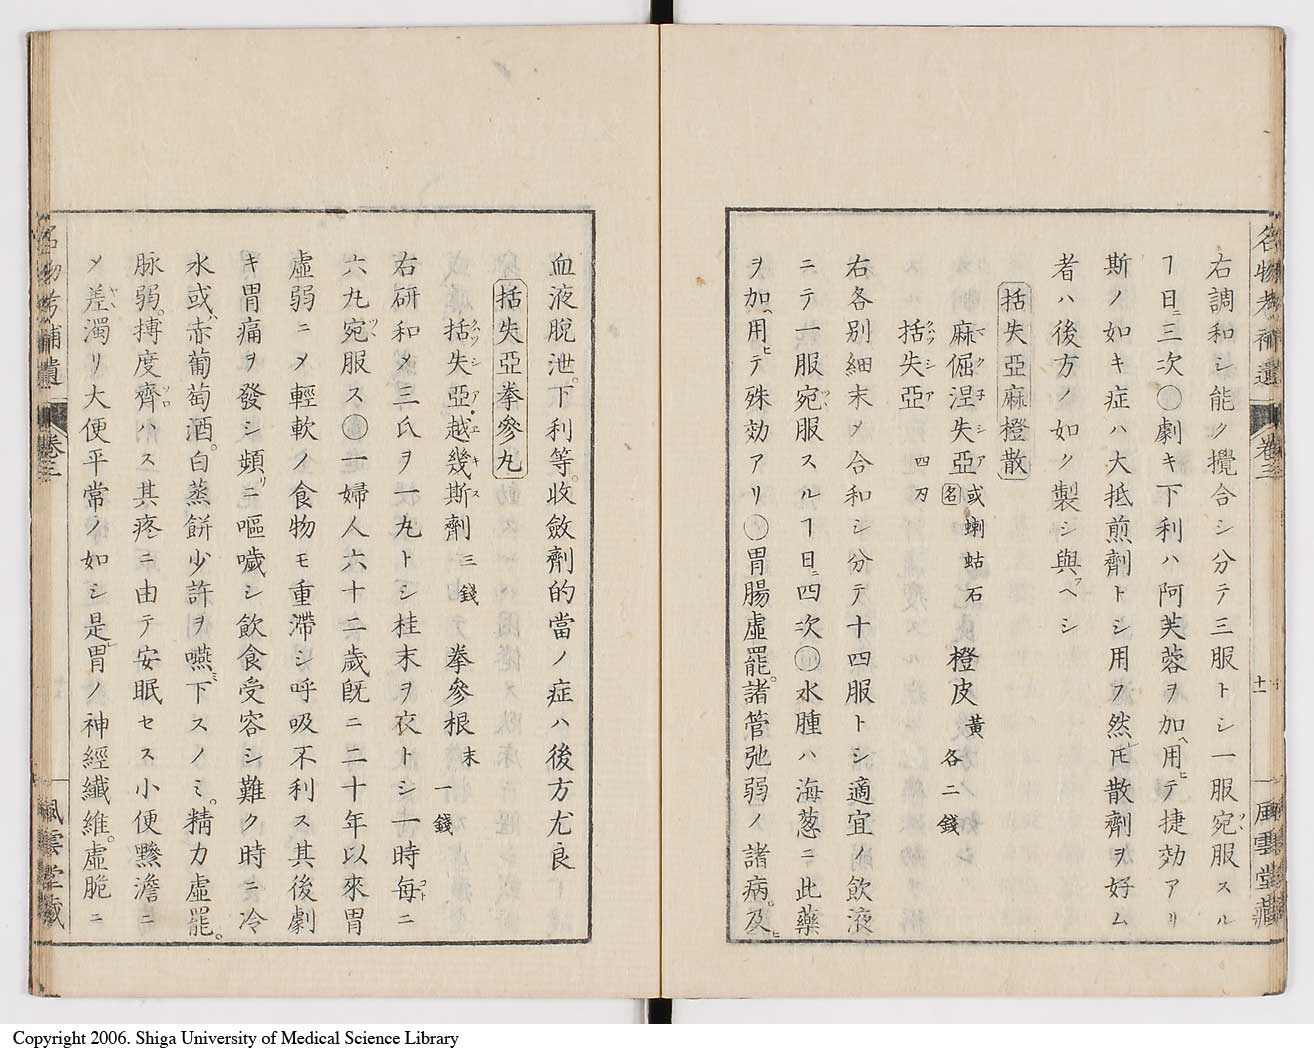 名物考補遺 卷三 十一 風雲堂藏
右調和シ能ク攪合シ分テ三服トシ一服宛服スル
ヿ日ニ三次○劇キ下利ハ阿芙蓉ヲ加用テ捷効アリ
斯ノ如キ症ハ大抵煎劑トシ用フ然𪜈散劑ヲ好ム
者ハ後方ノ如ク製シ與ヘシ
括失亞麻橙散
麻倔涅失亞 名 或蝲蛄石 橙皮 黃 各二錢
括失亞 四刀
右各別細末メ合和シ分テ十四服トシ適宜ノ飲液
ニテ一服宛服スルヿ日ニ四次○水腫ハ海葱ニ此藥
ヲ加用テ殊効アリ○胃腸虛罷。諸管弛弱ノ諸病。及
血液脫泄。下利等。收斂劑的當ノ症ハ後方尤良
括失亞拳參丸
括失亞越幾斯劑 三錢 拳參根 末 一錢
右研和メ三氏ヲ一丸トシ桂末ヲ衣トシ一時每ニ
六丸宛服ス○一婦人六十二歲既ニ二十年以來胃
虛弱ニメ輕軟ノ食物モ重滯シ呼吸不利ス其後劇
キ胃痛ヲ發シ頻ニ嘔噦シ飲食受容シ難ク時ニ冷
水或赤葡萄酒。白蒸餅少許ヲ嚥下スノミ。精力虛罷。
脉弱。摶度齊ハス其疼ニ由テ安眠セス小便黲澹ニ
メ差濁リ大便平常ノ如シ是胃ノ神經纖維。虛脆ニ
名物考補遺 卷三 風雲堂藏
Copyright 2006. Shiga University of Medical Science Library